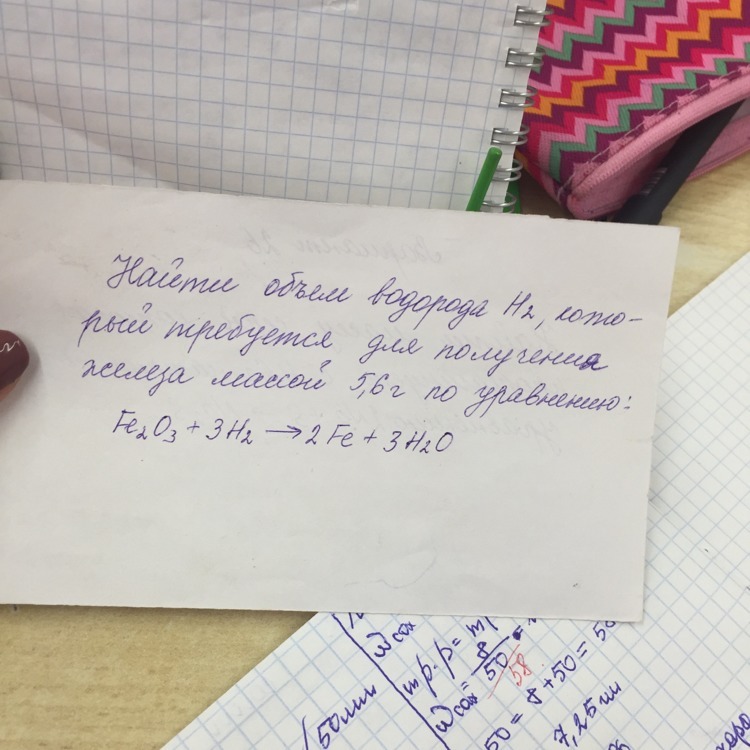 Найти объем водорода H₂, кото-
рый требуется для получения
железа массой 5,6 г по уравнению:
Fe₂O₃ + 3H₂ → 2Fe + 3H₂O
mр.р =
8
50
58
= 8 + 50 =
50мл
7,25 мл